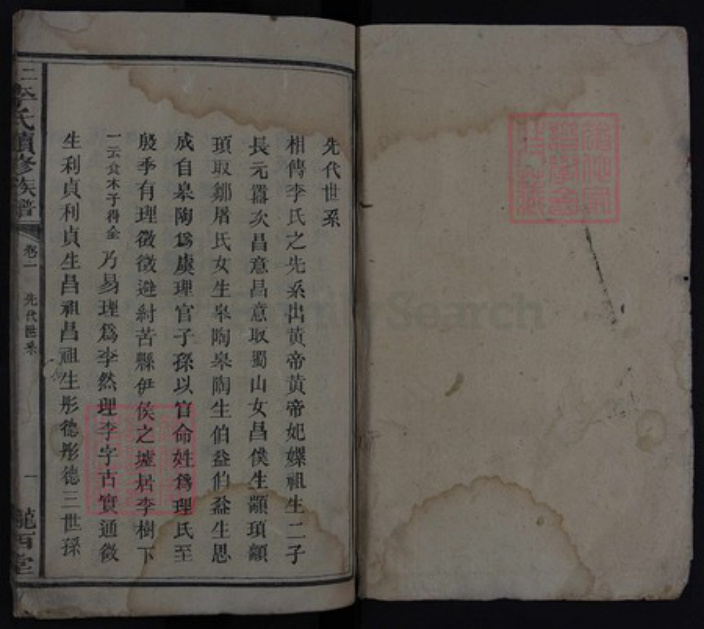 先代世系
相傳李氏之先系出黃帝黃帝妃嫘祖生二子
長元囂次昌意昌意取蜀山女昌僕生顓頊顓
頊取鄒屠氏女生皋陶皋陶生伯益伯益生恩
成自皋陶爲虞理官子孫以官命姓爲理氏至
殷季有理徵徵避紂苦縣伊侯之墟居李樹下
一云食木子得全 乃易理爲李然理李字古實通徵
生利貞利貞生昌祖昌祖生彤德彤德三世孫
二李氏續修族譜 卷一 先代世系 一 隴西堂
FamilySearch